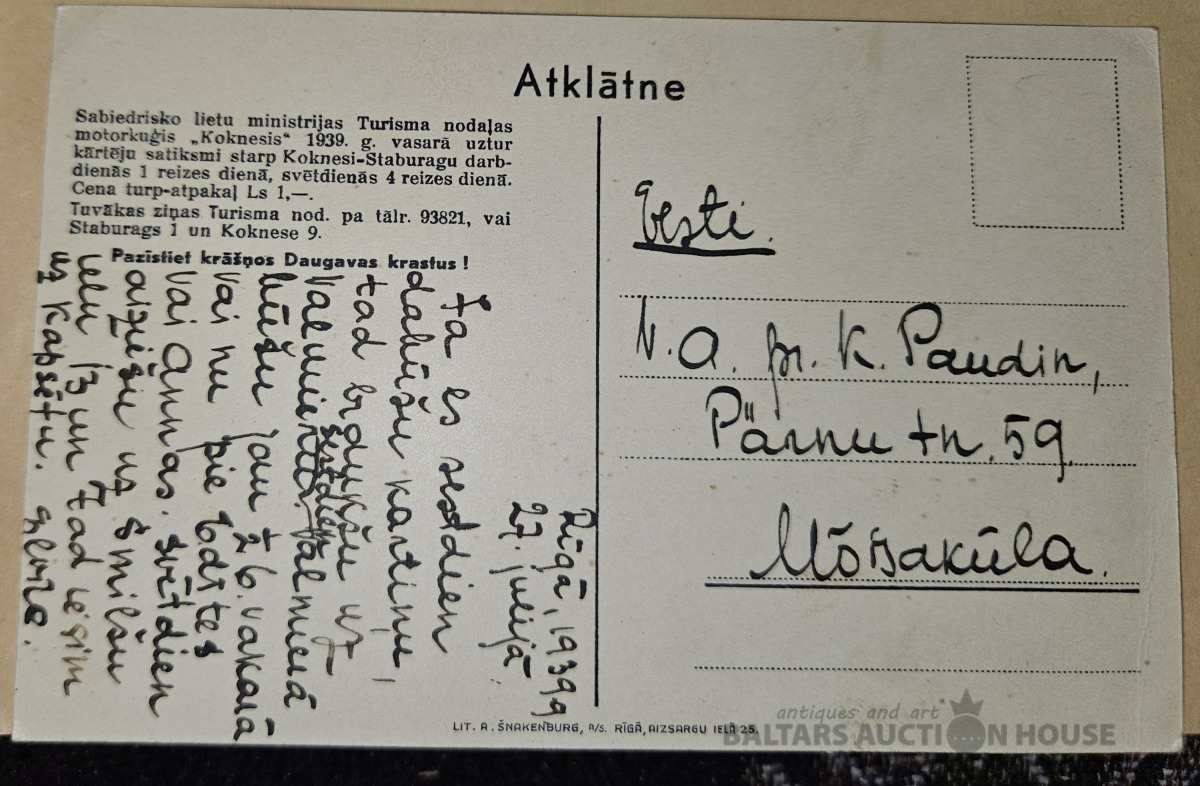 Atklātne
Sabiedrisko lietu ministrijas Turisma nodaļas
motorkuģis „Koknesis“ 1939. g. vasarā uztur
kārtēju satiksmi starp Koknesi-Staburagu darb-
dienās 1 reizes dienā, svētdienās 4 reizes dienā.
Cena turp-atpakaļ Ls 1,—.
Tuvākas ziņas Turisma nod. pa tālr. 93821, vai
Staburags 1 un Koknese 9.
Pazīstiet krāšņos Daugavas krastus!
Rīgā, 1939 g
27. julijā.
Ja es sestdien
dabūšu kartiņu,
tad braukšu uz
Valmieru. Valmierā
sestdien
būšu jau ½ 6. vakarā
vai nu pie
vai Annas. Svētdien
aiziešu uz Smilšu
ielu 13 un tad iesim
uz kapsētu.
Eesti.
A. pr. K. Paudin,
Pärnu tn. 59.
Mõisaküla.
LIT. A. ŠNAKENBURG, A/S. RĪGĀ, AIZSARGU IELĀ 25.
antiques and art
BALTARS AUCTION HOUSE